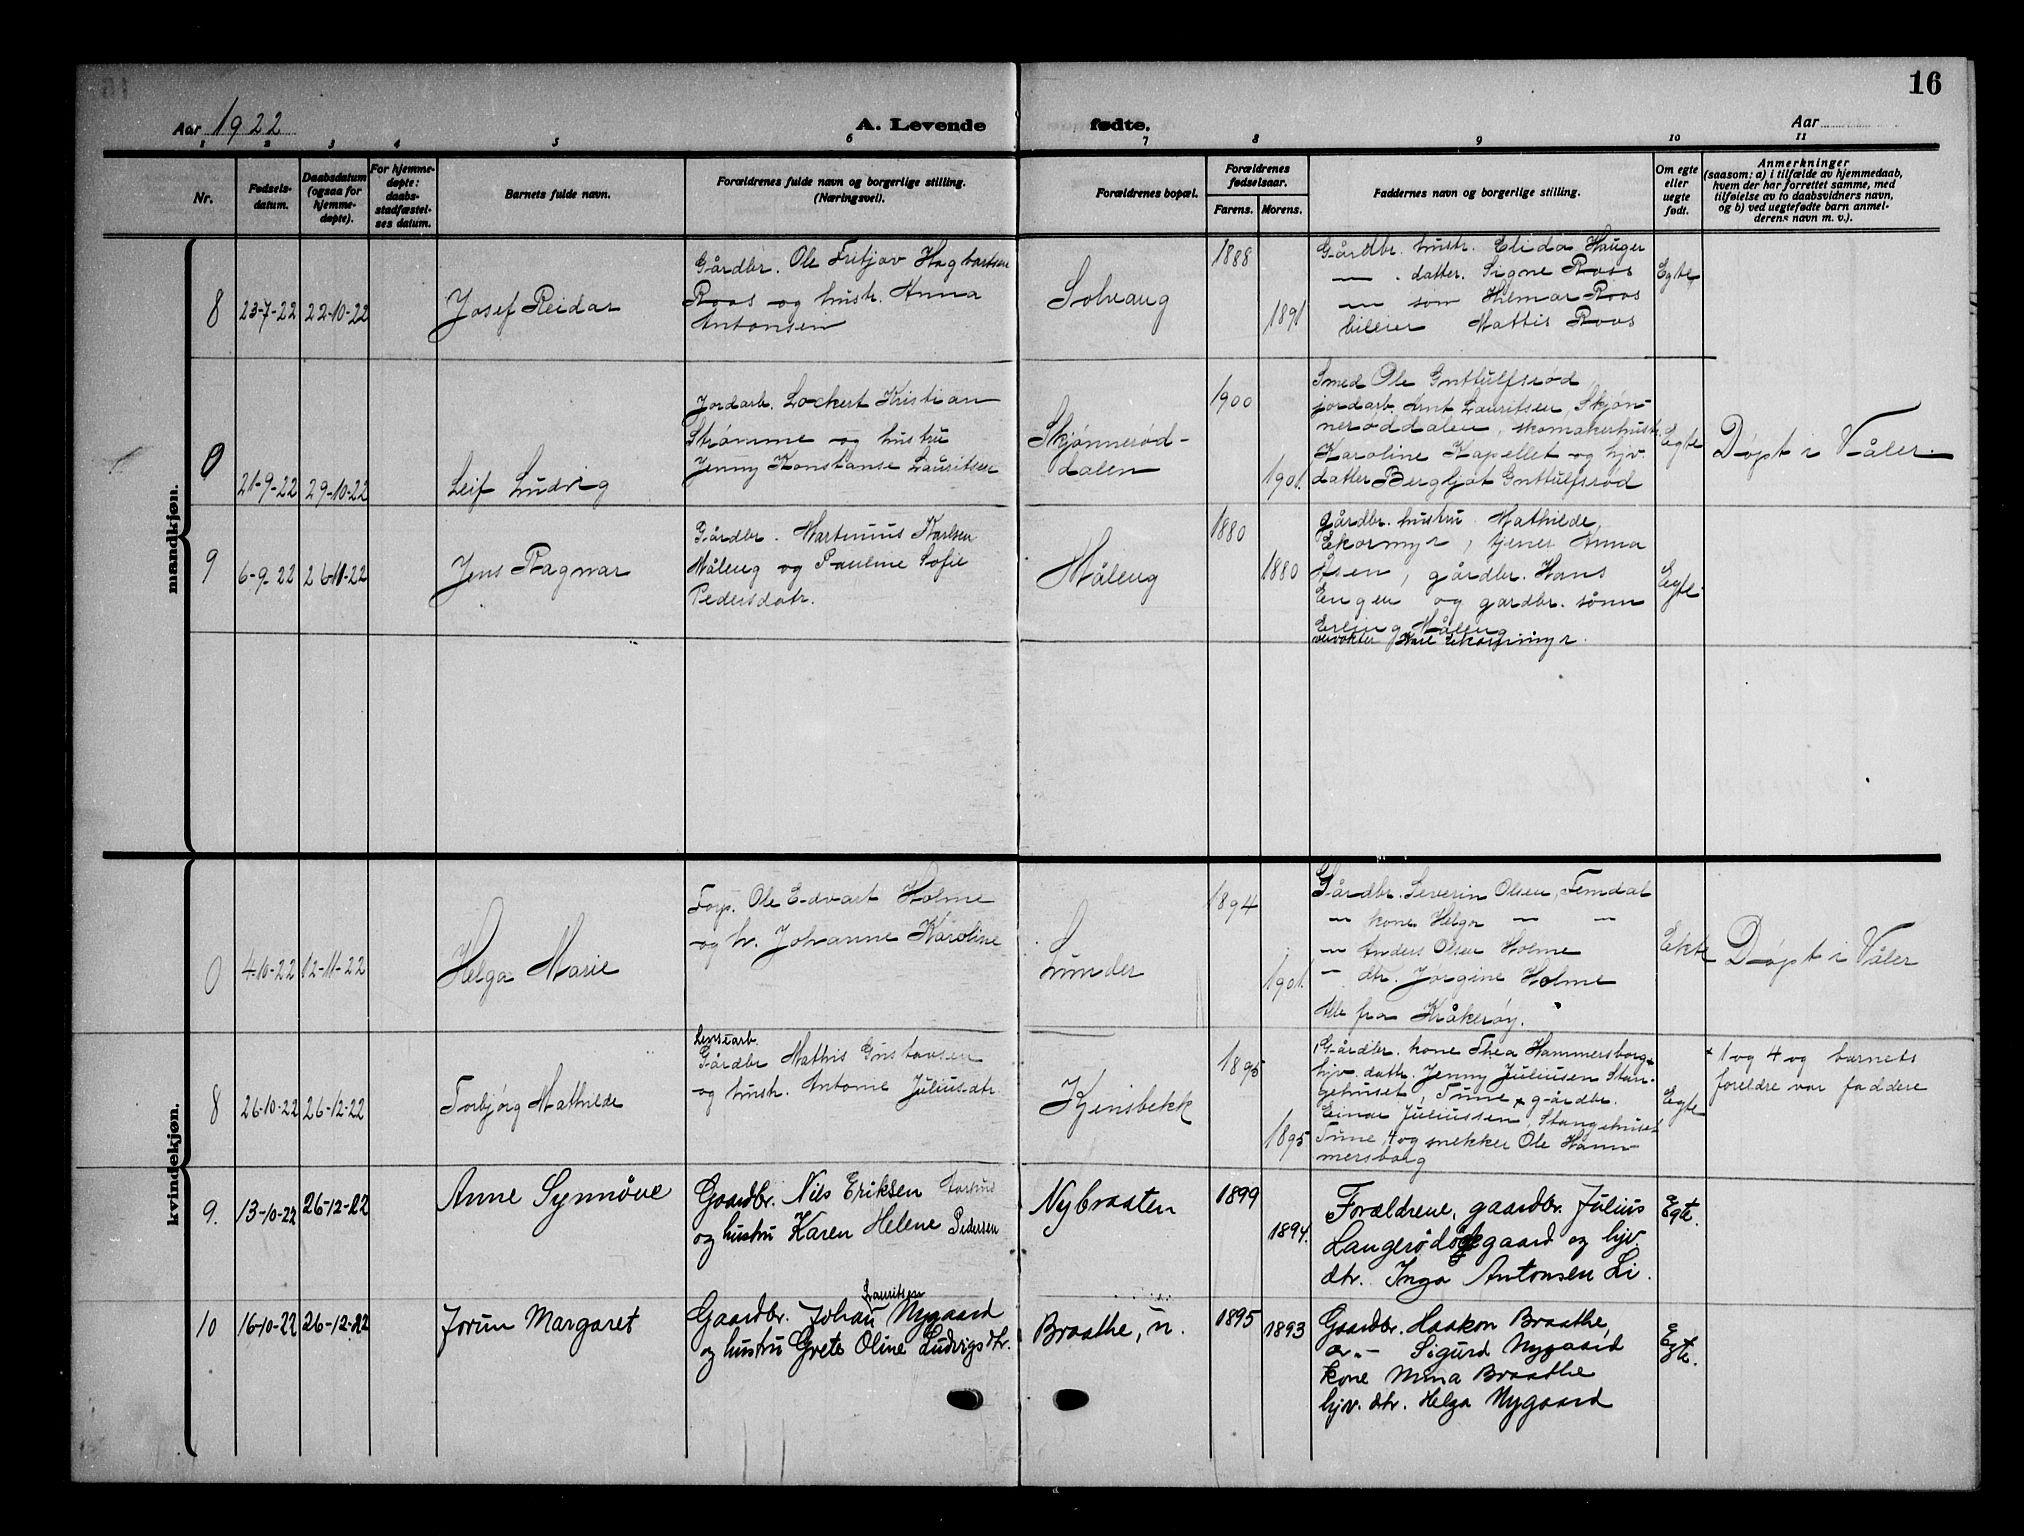 16
Aar 1922
A. Levende fødte.
Aar
1 2 3 4 5 6 7 8 9 10 11
Nr.
Fødsels-
datum.
Daabsdatum
(ogsaa for
hjemme-
døpte).
For hjemme-
døpte:
daabs-
stadfæstel-
ses datum.
Barnets fulde navn.
Forældrenes fulde navn og borgerlige stilling.
(Næringsvei).
Forældrenes bopæl.
Forældrenes
fødselsaar.
Farens. Morens.
Faddernes navn og borgerlige stilling.
Om egte
eller
uegte
født.
Anmerkninger
(saasom: a) i tilfælde av hjemmedaab,
hvem der har forrettet samme, med
tilføielse av to daabsvidners navn,
og b) ved uegtefødte barn anmel-
derens navn m. v.).
mandkjøn.
8 23-7-22 22-10-22
Josef Reidar
Gårdbr. Ole Fritjov Hagbartsen
Roos og hustr. Anna
Antonsen
Solvang
1888
1891
Gårdbr. hustr. Elida Hauger
— . datter. Signe Roos
— søn Hilmar Roos
Mattis Roos
Egte
0 21-9-22 29-10-22
Leif Ludvig
Jordarb. Lockert Kristian
Strømme og hustru
Jenny Konstanse Lauritsen
Skjønnerød-
dalen
1900
1901.
Smed Ole Guttulfsrød
jordarb. Arnt Lauritsen, Skjøn-
nerøddalen, skomakerhustr.
Karoline Kapellet og hjv.
datter Bergljot Guttulfsrød
Egte
Døpt i Våler.
9 6-9-22 26-11-22
Jens Ragnar
Gårdbr. Martinius Karlsen
Måleng og Pauline Sofie
Pedersdatr.
Måleng
1880
1880
gårdbr. hustru Mathilde,
Ekormyr, tjener Anna
Olsen, gårdbr. Hans
Engen og gardbr. sønn
Erling Måleng
Kare Ekormyr.
Egte.
kvindekjøn.
0 4-10-22 12-11-22
Helga Marie
Forp. Ole Edvart Holme
og h. Johanne Karoline
Sunder
1894
1901.
Gårdbr. Severin Olsen, Femdal
— kone Helga — —
— Anders Olsen Holme
— dtr. Jorgine Holme
Alle fra Kråkerøy.
Ekte
Døpt i Våler
8 26-10-22 26-12-22
Torbjørg Mathilde
Gårdbr Mathis Gustavsen
og hustr. Antonie Juliusdtr
Kjensbekk
1895
1895
Gårdbr. kone Thea Hammersborg +
hjv. datr. Jenny Juliusen Stan-
gehuset, Tune + gårdbr.
Einar Juliussen, Stangehuset
Tune, 4 og snekker Ole Ham-
mersborg
Egte
+ 1 og 4 og barnets
foreldre var faddere
9. 13-10-22 26-12-22
Anne Synnøve
Gaardbr. Nils Eriksen
og hustru Karen Helene Pedersen
Nybraaten
1899
1894.
Forældrene, gaardbr. Julius
Langerødødegaard og hjv.
dtr. Inga Antonsen Li.
Egte.
10 16-10-22 26-12-22
Jorun Margaret
Lauritsen
Gaardbr. Johan Nygaard
og hustru Grete Oline Ludvigsdtr.
Braathe, n.
1895
1893
Gaardbr. Haakon Braathe,
— Sigurd Nygaard
kone Mina Braathe
hjv. dtr. Helga Nygaard
Egte.